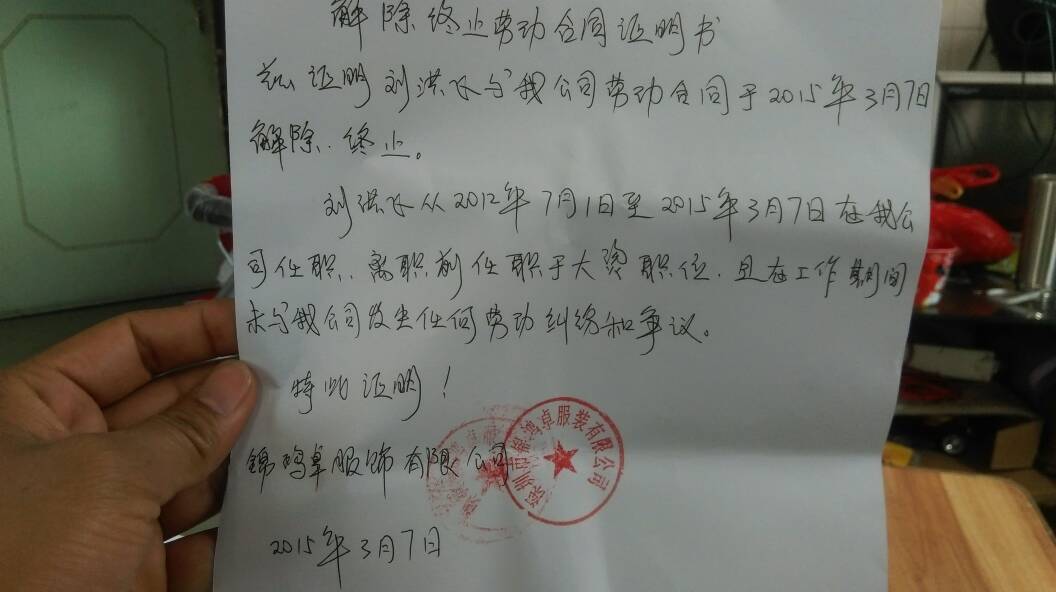 解除终止劳动合同证明书
兹证明刘洪飞与我公司劳动合同于2015年3月7日
解除、终止。
刘洪飞从2012年7月1日至2015年3月7日在我公
司任职、离职前任职于大烫职位、且在工作期间
未与我公司发生任何劳动纠纷和争议。
特此证明!
锦鸿卓服饰有限公司
深圳市锦鸿卓服装有限公司
2015年3月7日